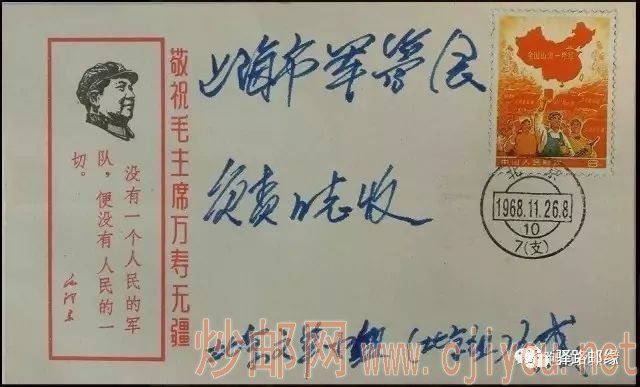 敬祝毛主席万寿无疆
没有一个人民的军
队，便没有人民的一
切。
毛泽东
上海市军管会
负责同志收
全国山河一片红
中国人民邮政
8
北京
1968.11.26.8
10
7(支)
北京
(北京组)
炒邮网 www.cjiyou.net
驿路邮缘